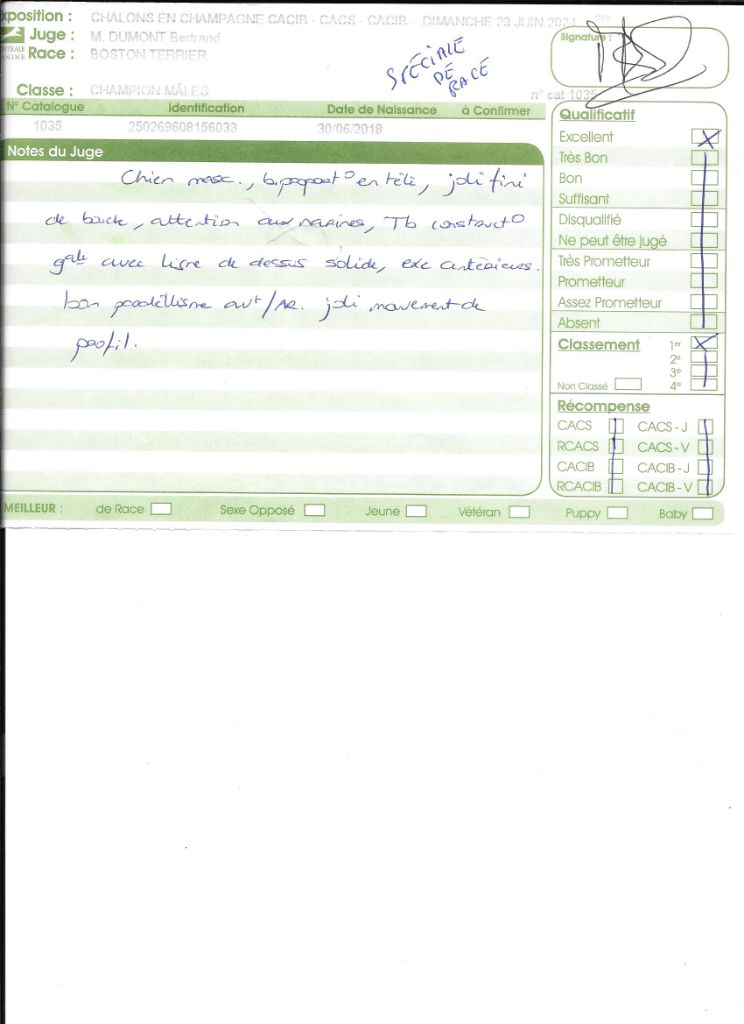 xposition : CHALONS EN CHAMPAGNE CACIB - CACS - CACIB - DIMANCHE 23 JUIN 2024
Juge : M. DUMONT Bertrand
Race : BOSTON TERRIER
NTRALE
ANINE
SPÉCIALE
DE
RACE
Signature :
Classe : CHAMPION MÂLES
n° cat 1035
N° Catalogue Identification Date de Naissance à Confirmer
1035 250269608156033 30/06/2018
Notes du Juge
Chien masc., b. propost° en tête, joli fini
de back, attention aux narines, Tb construct°
gale avec ligne de dessus solide, exc antérieurs.
bon parallélisme avt/AR. joli mouvement de
profil.
Qualificatif
Excellent X
Très Bon
Bon
Suffisant
Disqualifié
Ne peut être jugé
Très Prometteur
Prometteur
Assez Prometteur
Absent
Classement 1er X
2e
3e
Non Classé 4e
Récompense
CACS CACS - J
RCACS CACS - V
CACIB CACIB - J
RCACIB CACIB - V
MEILLEUR : de Race Sexe Opposé Jeune Vétéran Puppy Baby